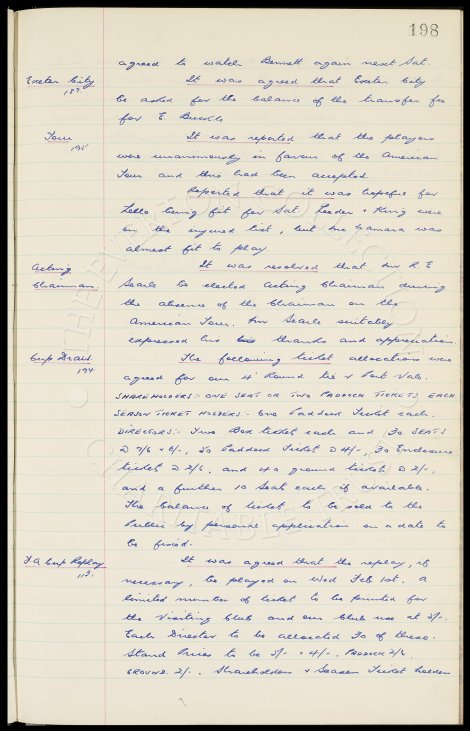 198
agreed to watch Bennett again next Sat.
Exeter City It was agreed that Exeter City
187. be asked for the balance of the transfer fee
for E. Buckle
Tour It was reported that the players
195 were unanimously in favour of the American
Tour and this had been accepted
Reported that it was hopeful for
Lello being fit for Sat. Leeder & King were
on the injured list, but McNamara was
almost fit to play.
Acting It was resolved that Mr R. E
Chairman. Searle be elected Acting Chairman during
the absence of the Chairman on the
American Tour. Mr Searle suitably
expressed his thanks and appreciation.
Cup Draw. The following ticket allocations were
194 agreed for our 4th Round tie v Port Vale.
SHAREHOLDERS:- ONE SEAT OR TWO PADDOCK TICKETS EACH.
SEASON TICKET HOLDERS:- One Paddock Ticket each.
DIRECTORS:- Two Box tickets each and 30 SEATS
@ 7/6 & 6/-, 50 Paddock Tickets @ 4/-, 30 Enclosure
tickets @ 2/6, and 40 ground tickets @ 2/-,
and a further 10 Seats each if available.
The balance of tickets to be sold to the
Public by personal application on a date to
be fixed.
F A Cup Replay It was agreed that the replay, if
113. necessary, be played on Wed Feb 1st. A
limited number of tickets to be printed for
the Visiting Club and our Club use at 5/-.
Each Director to be allocated 30 of these.
Stand Prices to be 5/- & 4/-. PADDOCK 2/6
GROUND 2/-. Shareholders & Season Ticket holders
THE EVERTON COLLECTION
CHARITABLE TRUST